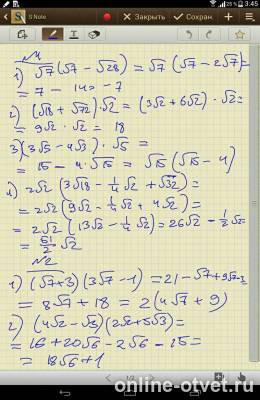 3:45
S Note
Закрыть
Сохран.
№1
1) √7(√7 - √28) = √7 (√7 - 2√7) =
= 7 - 14 = -7
2) (√18 + √72)·√2 = (3√2 + 6√2)·√2 =
= 9√2 · √2 = 18
3) (3√3 - 4√3)·√5 =
= 15 - 4·√15 = √15(√15 - 4)
4) 2√2 (3√18 - 1/4 √2 + √32) =
= 2√2 (9√2 - 1/4 √2 + 4√2) =
= 2√2 (13√2 - 1/4 √2) = 26√2 - 1/2 √2 =
= 51/2 √2
№2
1) (√7+3)(3√7 - 1) = 21 - √7 + 9√7 - 3
= 8√7 + 18 = 2(4√7 + 9)
2) (4√2 - √3)(2√2 + 5√3) =
= 16 + 20√6 - 2√6 - 15 =
= 18√6 + 1
online-otvet.ru